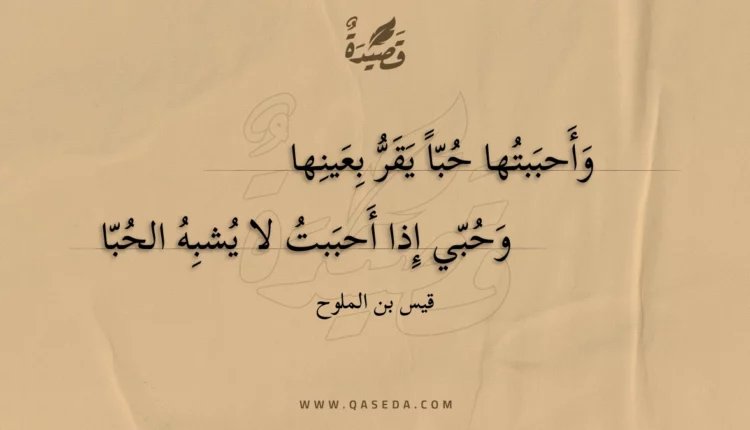 قَصِيْدَةٌ
وَأَحبَبتُها حُبّاً يَقَرُّ بِعَينِها
وَحُبّي إِذا أَحبَبتُ لا يُشبِهُ الحُبّا
قيس بن الملوح
WWW.QASEDA.COM